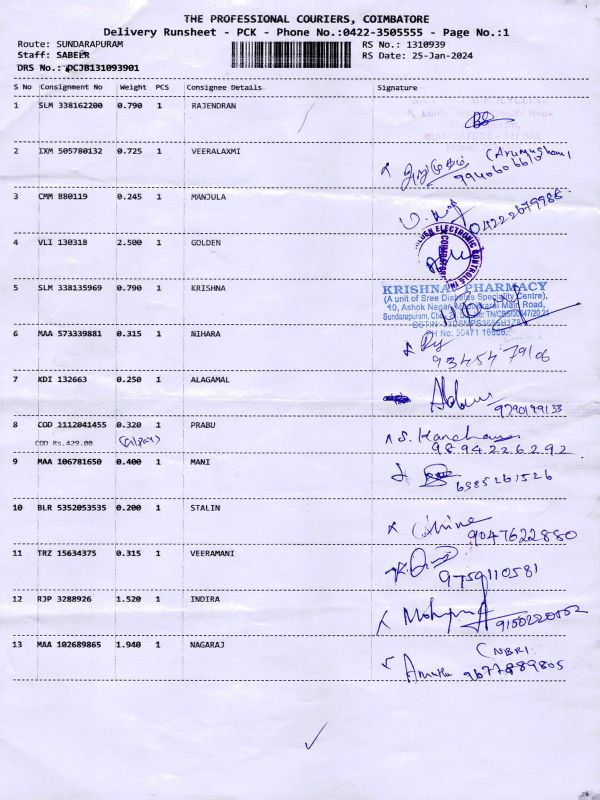 THE PROFESSIONAL COURIERS, COIMBATORE
Delivery Runsheet - PCK - Phone No.:0422-3505555 - Page No.:1
Route: SUNDARAPURAM RS No.: 1310939
Staff: SABEER RS Date: 25-Jan-2024
DRS No.: PCJB131093901
S No Consignment No Weight PCS Consignee Details Signature
1 SLM 338162200 0.790 1 RAJENDRAN
2 IXM 505780132 0.725 1 VEERALAXMI
(Arumugham)
ஆறுமுகம்
3 CMM 880119 0.245 1 MANJULA
4 VLI 130318 2.500 1 GOLDEN
GOLDEN ELECTRONIC CONTROLS COIMBATORE
5 SLM 338135969 0.790 1 KRISHNA
KRISHNA PHARMACY
(A unit of Sree Diabetes Speciality Centre),
10, Ashok Nagar, Main Road,
Sundarapuram,
6 MAA 573339881 0.315 1 NIHARA
7 KDI 132663 0.250 1 ALAGAMAL
8 COD 1112041455 0.320 1 PRABU
COD Rs.429.00 (Gpay)
9894226292
9 MAA 106781650 0.400 1 MANI
6385261526
10 BLR 5352053535 0.200 1 STALIN
9047622880
11 TRZ 15634375 0.315 1 VEERAMANI
9759110581
12 RJP 3288926 1.520 1 INDIRA
13 MAA 102689865 1.940 1 NAGARAJ
9677889805